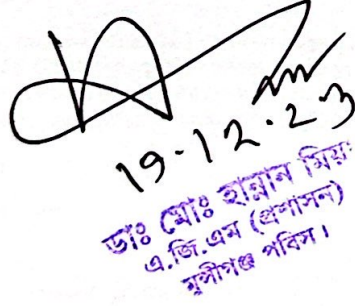 19-12.23
ডাঃ মোঃ হান্নান মিয়া
এ.জি.এম (প্রশাসন)
মুন্সীগঞ্জ পবিস।